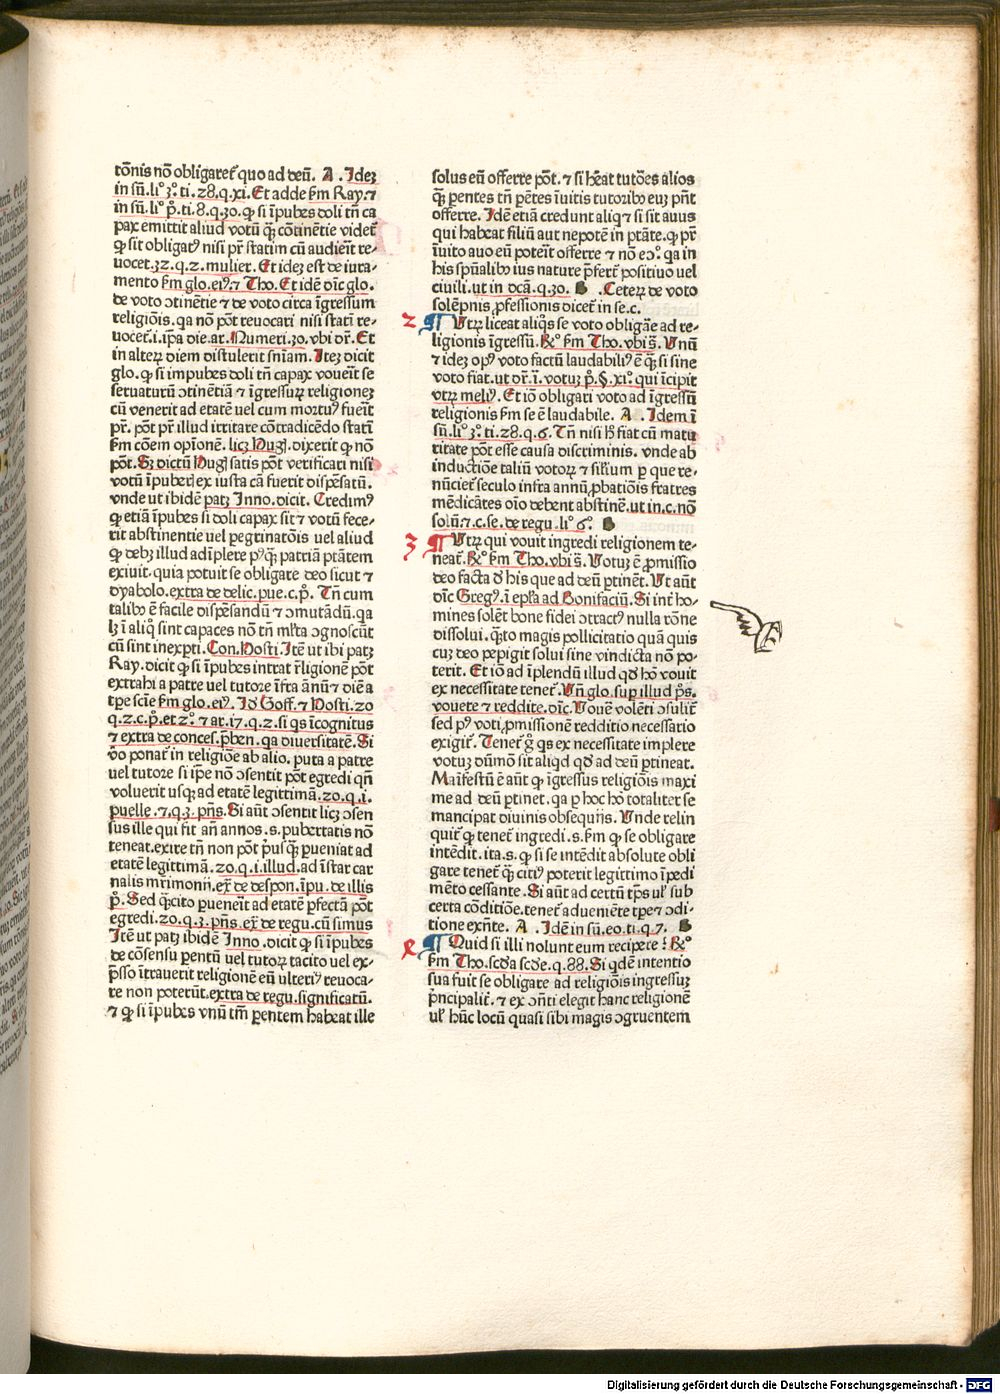 tōnis nō obligaret᷑ quo ad deū. A. Idez
in sū. liº 3º. ti. 28. q. xi. Et adde ẜm Ray. ⁊
in sū. liº pº. ti. 8. q. 30. ꝙ si īpubes doli tn̄ ca
pax emittit aliud votū q̄ꝫ cōtinētie videt᷑
ꝙ sit obligatꝰ nisi pr̄ statim cū audieīt re-
uocet. 32. q. 2. mulier. Et idez est de iura-
mento ẜm glo. eiꝰ. ⁊ Tho. Et idē dīc glo.
de voto ↄtinētie ⁊ de voto circa īgressum
religiōis. qa nō pōt reuocari nisi statī re-
uocet᷑. i. ip̄a die. ar. Numeri. 30. vbi dr̄. Et
in alterꝫ diem distulerit sn̄iam. Itez dicit
glo. ꝙ si impubes doli tn̄ capax voueīt se
seruaturū ↄtinētiā ⁊ īgressurꝫ religionez
cū venerit ad etatē uel cum mortuꝰ fueīt
pr̄. pōt pr̄ illud irritare cōtradicēdo statī
ẜm cōem opionē. licꝫ Hug. dixerit ꝙ nō
pōt. Sꝫ dictū Hug. satis pōt verificari nisi
votū īpuberꝫ ex iusta cā fuerit dispēsatū.
vnde ut ibidē patꝫ Inno. dicit. Credimꝰ
ꝙ etiā īpubes si doli capax sit ⁊ votū fece-
rit abstinentie uel pegrinatōis uel aliud
ꝙ debꝫ illud adīplere pꝰq̄ꝫ patriā ptātem
exiuit. quia potuit se obligare deo sicut ⁊
dyabolo. extra de delic. pue. c. pº. Tn̄ cum
talibꝰ ē facile dispēsandū ⁊ ↄmutādū. qa
lꝫ ī aliqᵒ sint capaces nō tn̄ ml̄ta ↄgnoscūt
cū sint inexpti. Con. Hosti. Itē ut ibi patꝫ
Ray. dicit ꝙ si īpubes intrat r̄ligionē pōt
extrahi a patre uel tutore īfra ānū ⁊ diē a
tpe scīe ẜm glo. eiꝰ. Id Goff. ⁊ Hosti. 20
q. 2. c. pº. et 2º. ⁊ ar. 17. q. 2. si qs īcognitus
⁊ extra de conces. pben. qa diuersitatē. Si
vᵒ ponat᷑ in religiōe ab alio. puta a patre
uel tutore si ip̄e nō ↄsentit pōt egredi qn̄
voluerit usqꝫ ad etatē legittimā. 20. q. i.
puelle. ⁊. q. 3. pn̄s. Si aūt ↄsentit licꝫ ↄsen
sus ille qui fit an̄ annos. s. pubertatis nō
teneat. exire tn̄ non pōt pᵘsq̄ꝫ pueniat ad
etatē legittimā. 20. q. i. illud. ad īstar car
nalis mr̄imonii. ex̄ de despon. īpu. de illis
pº. Sed q̄cito pueneīt ad etatē pfectā pōt
egredi. 20. q. 3. pn̄s. ex̄ de regu. cū simus
Itē ut patꝫ ibidē Inno. dicit ꝙ si īpubes
de cōsensu pentū uel tutorꝫ tacito uel ex-
p̄sso ītrauerit religionē eū ulteriꝰ reuoca-
re non poterūt. extra de regu. significatū.
⁊ ꝙ si īpubes vnū tm̄ pentem habeat ille
solus eū offerre pōt. ⁊ si hēat tutōes alios
q̄ꝫ pentes tn̄ pētes īuitis tutoribꝰ euꝫ pn̄t
offerre. Idē etiā credunt aliq ⁊ si sit auus
qui habeat filiū aut nepotē in ptāte. ꝙ pr̄
īuito auo eū poteīt offerre ⁊ nō eↄº. qa in
his spūalibꝰ ius nature p̄fert᷑ positiuo uel
ciuili. ut in dcā. q. 30. B. Ceterꝫ de voto
solēpnis ꝓfessionis dicet᷑ in se. c.
2 ¶ Vtrꝫ liceat aliqͥs se voto obligāe ad re-
ligionis īgressū. ℞º ẜm Tho. vbi s̄. Vnū
⁊ idez opꝰ voto factū laudabiliꝰ ē q̄ꝫ si sine
voto fiat. ut dr̄. ī. votuꝫ pº. §. xiº. qui īcipit
vtrꝫ meliꝰ. Et iō obligari voto ad īgressū
religionis ẜm se ē laudabile. A. Idem ī
sū. liº 3º. ti. 28. q. 6. Tn̄ nisi h̄ fiat cū matu
ritate pōt esse causa discriminis. vnde ab
inductiōe taliū votorꝫ ⁊ sil̄ium p que re-
nūciet᷑ seculo infra annū ꝓbatiōis fratres
mēdicātes oīo debent abstinē. ut in. c. nō
solū. ⁊. c. se. de regu. liº 6º. B
3 ¶ Vtrꝫ qui vouit ingredi religionem te-
neat᷑. ℞º ẜm Tho. vbi s̄. Votuꝫ ē ꝓmissio
deo facta d̄ his que ad deū ptinēt. Vt aūt
dīc Gregꝰ. ī epl̄a ad Bonifaciū. Si int᷑ ho-
mines solēt bone fidei ↄtractꝰ nulla rōne
dissolui. q̄ꝫto magis pollicitatio quā quis
cuꝫ deo pepigit solui sine vindicta nō po-
terit. Et iō ad īplendū illud qd̄ hō vouit
ex necessitate tenet᷑. Vn̄ glo. sup illud ps̄.
vouete ⁊ reddite. dīc. Vouē volēti ↄsulit᷑
sed pꝰ voti ꝓmissionē redditio necessario
exigit᷑. Tenet᷑ gº qs ex necessitate implere
votuꝫ dūmō sit aliqd qd̄ ad deū ptineat.
Maīfestū ē aūt ꝙ īgressus religiōis maxi
me ad deū ptinet. qa p hoc hō totaliter se
mancipat diuinis obsequiis. Vnde relin
quit᷑ ꝙ tenet᷑ ingredi. s. ẜm ꝙ se obligare
intēdit. ita. s. ꝙ si se intēdit absolute obli
gare tenet᷑ q̄ꝫ citiꝰ poterit legittimo īpedi
mēto cessante. Si aūt ad certū tp̄s ul̄ sub
certa cōditiōe. tenet᷑ adueniēte tpe ⁊ ↄdi-
tione exn̄te. A. Idē in sū. eo. ti. q. 7. B
4 ¶ Quid si illi nolunt eum recipere? ℞º
ẜm Tho. scd̄a scd̄e. q. 88. Si qdē intentio
sua fuit se obligare ad religiōis ingressuꝫ
p̄ncipalit᷑. ⁊ ex ↄn̄ti elegit hanc religionē
ul̄ hūc locū quasi sibi magis ↄgruentem
Digitalisierung gefördert durch die Deutsche Forschungsgemeinschaft - DFG